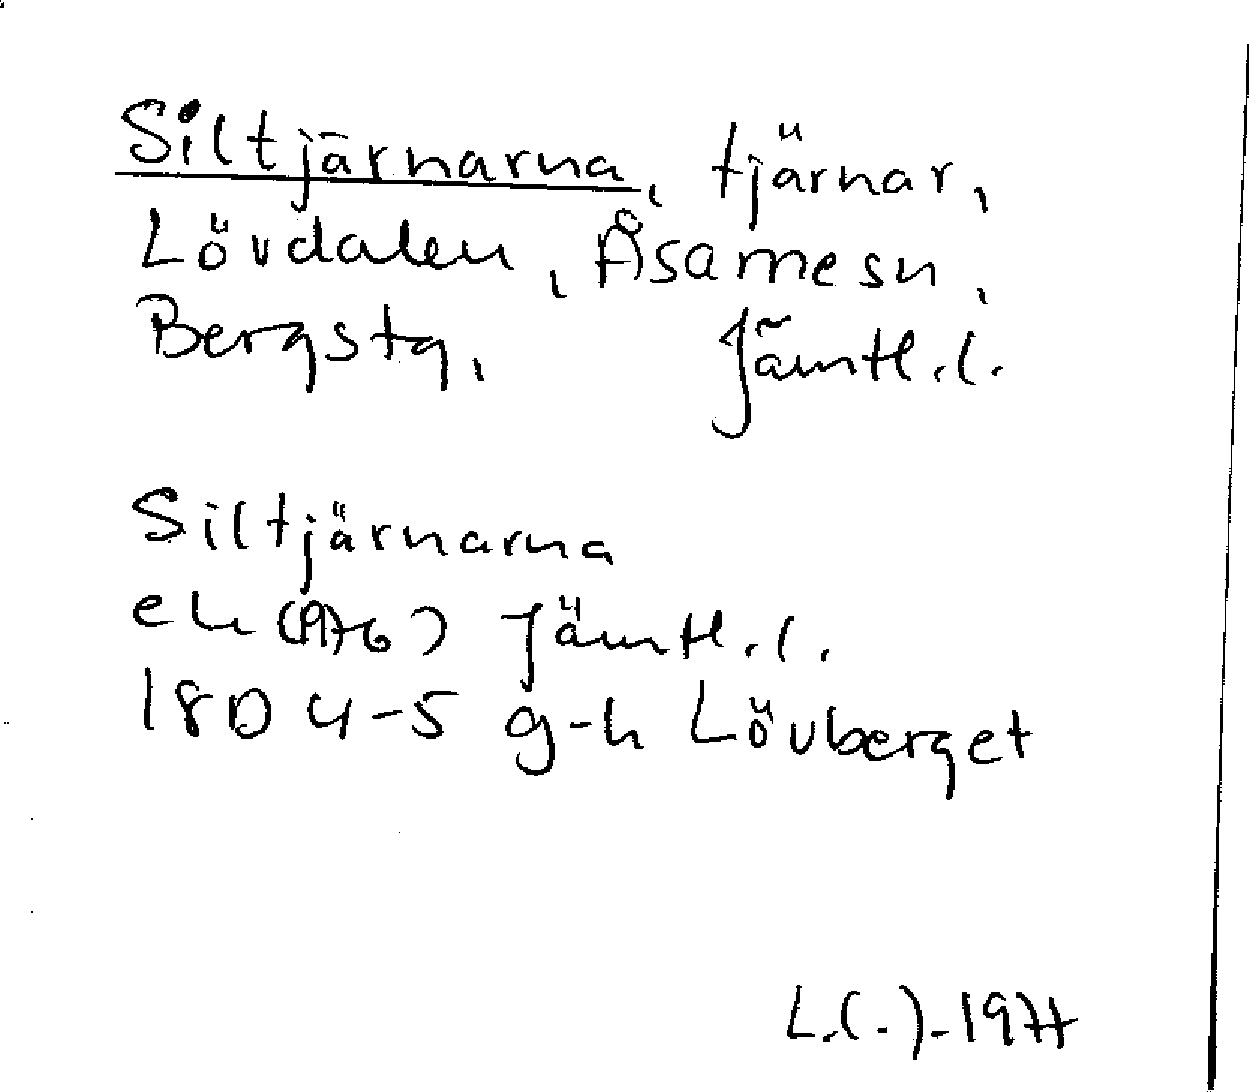 Siltjärnarna, tjärnar,
Lövdalen, Åsarnesn,
Bergstg, Jämtl.l.
Siltjärnarna
ek (1976) Jämtl.l.
18D 4-5 g-h Lövberget
L.(-)-1977